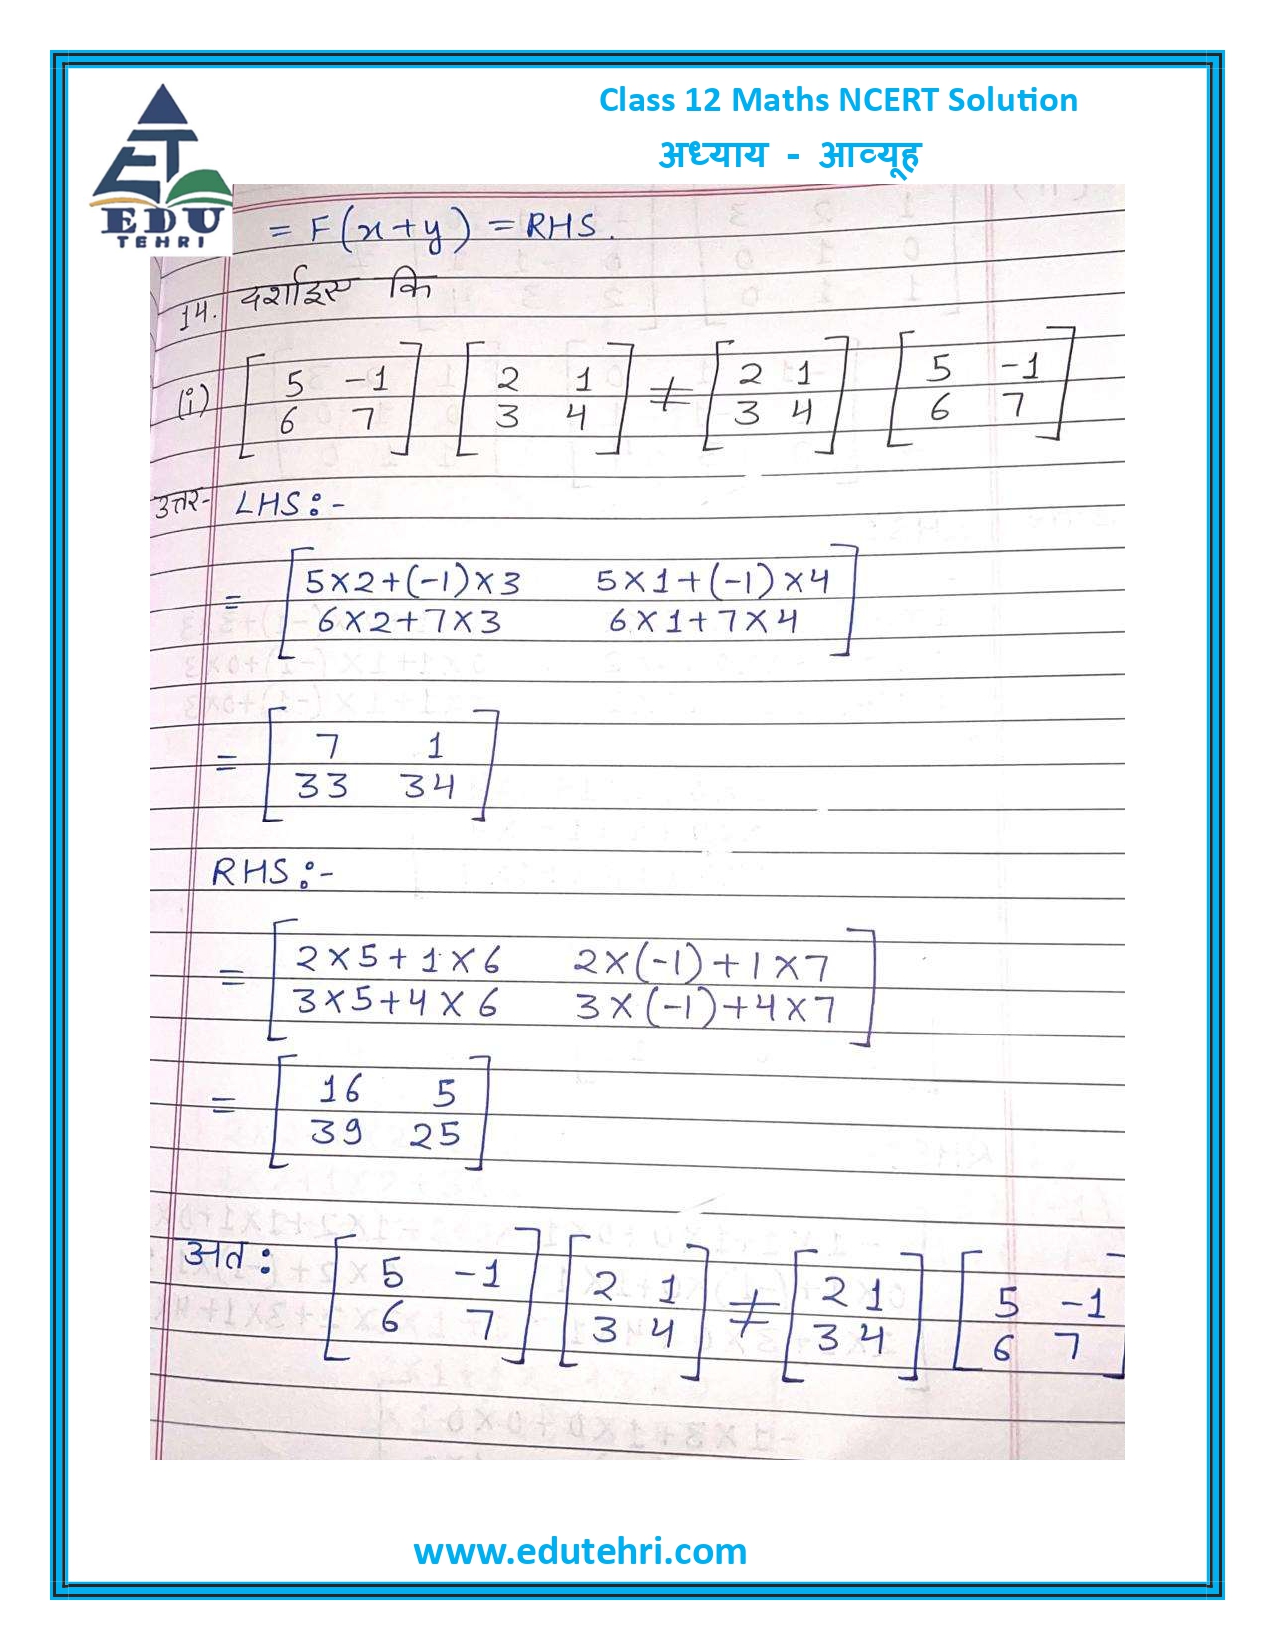 Class 12 Maths NCERT Solution
अध्याय - आव्यूह
EDU
TEHRI
= F(x+y) = RHS.
14. दर्शाइए कि
(i) [5 -1; 6 7] [2 1; 3 4] ≠ [2 1; 3 4] [5 -1; 6 7]
उत्तर- LHS:-
= [5×2+(-1)×3 5×1+(-1)×4; 6×2+7×3 6×1+7×4]
= [7 1; 33 34]
RHS:-
= [2×5+1×6 2×(-1)+1×7; 3×5+4×6 3×(-1)+4×7]
= [16 5; 39 25]
अत: [5 -1; 6 7] [2 1; 3 4] ≠ [2 1; 3 4] [5 -1; 6 7]
www.edutehri.com